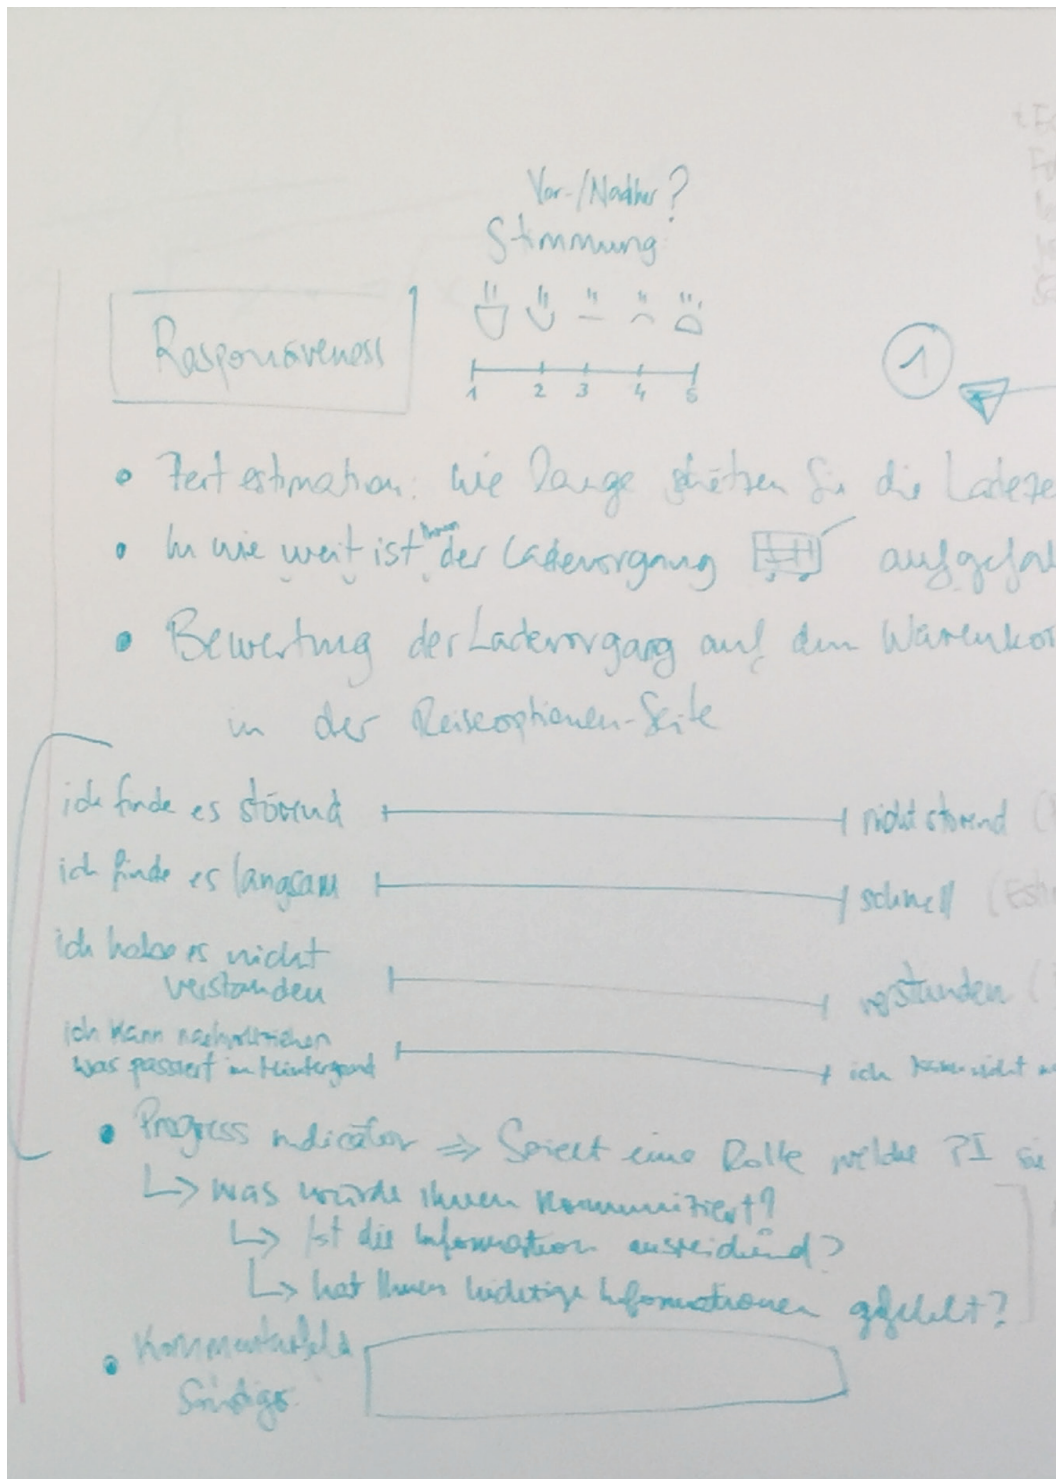 Vor-/Nachher?
Stimmung
Responsiveness
1 2 3 4 5
1
Zeit estimation: Wie lange schätzen Sie die Ladeze
In wie weit ist Ihnen der Ladevorgang aufgefal
Bewertung der Ladevorgang auf dem Warenkor
in der Reiseoptionen-Seite
ich finde es störend nicht störend
ich finde es langsam schnell (Esti
ich habe es nicht verstanden
verstanden
ich kann nachvollziehen
was passiert im Hintergrund ich kann nicht
Progress indicator => Spielt eine Rolle welche PI sie
was wurde Ihnen kommuniziert?
Ist die Information ausreichend?
hat Ihnen wichtige Informationen gefehlt?
Kommentarfeld